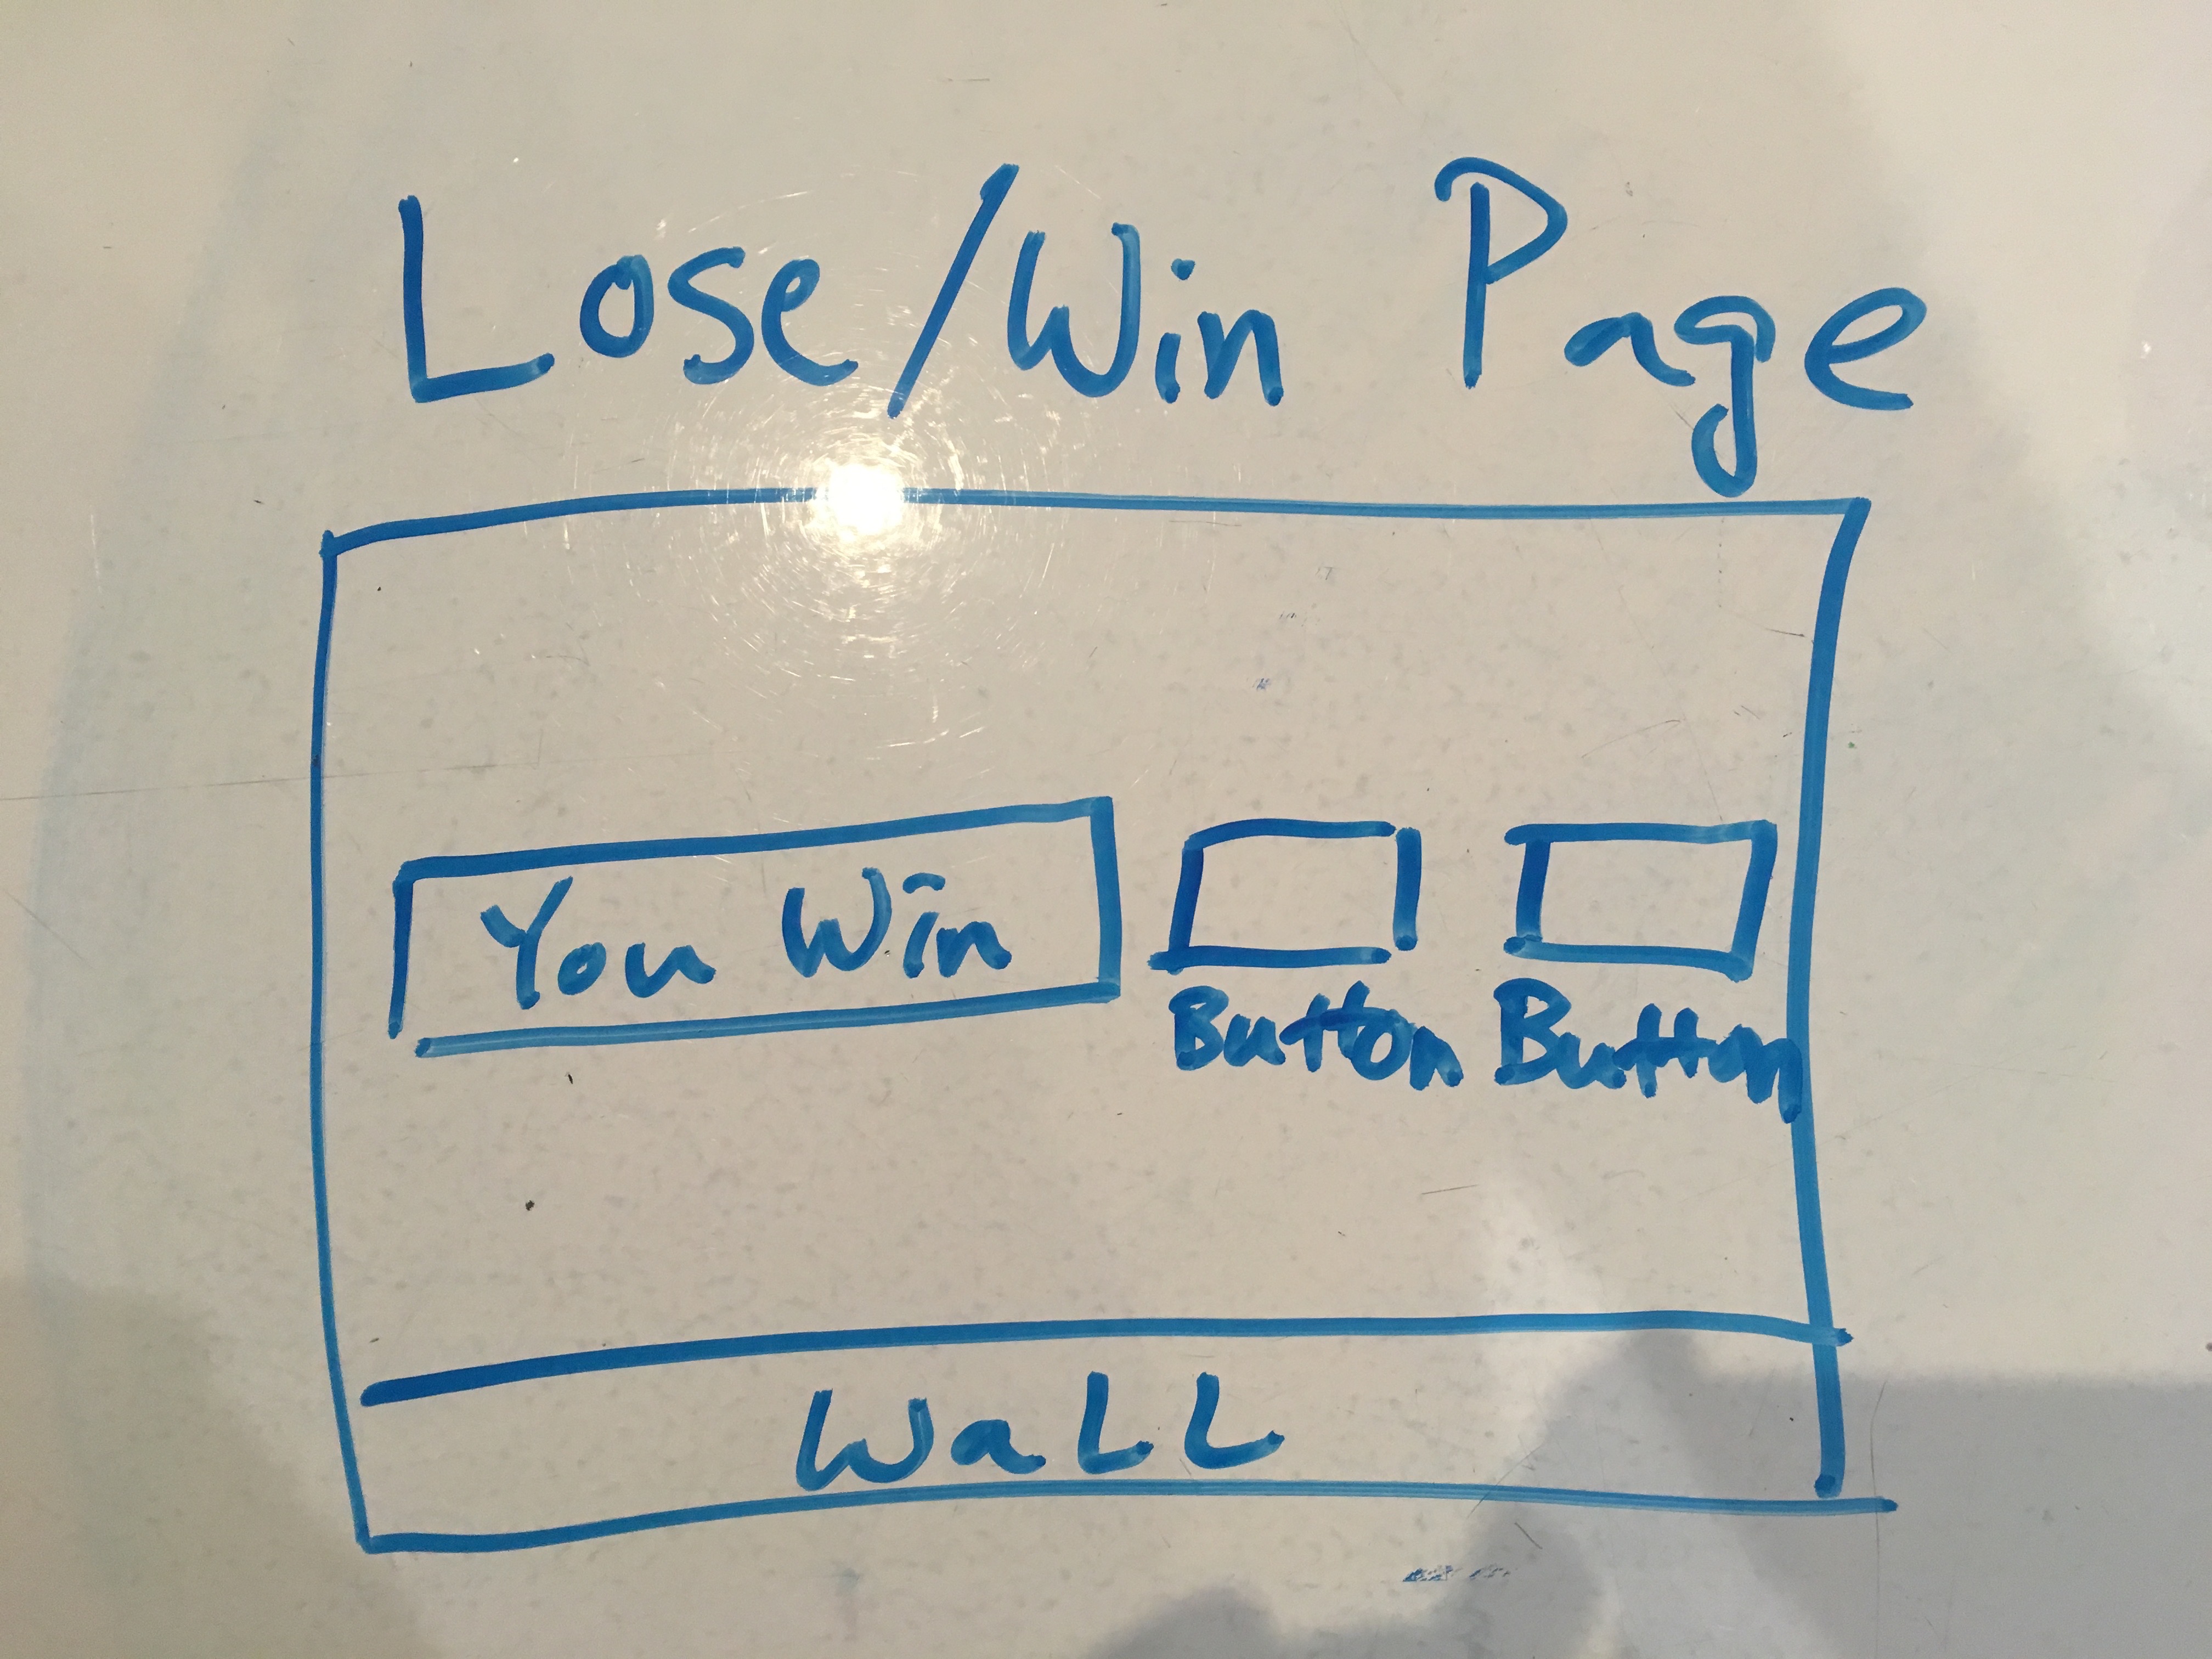 Lose/Win Page
You Win
Button Button
WaLL